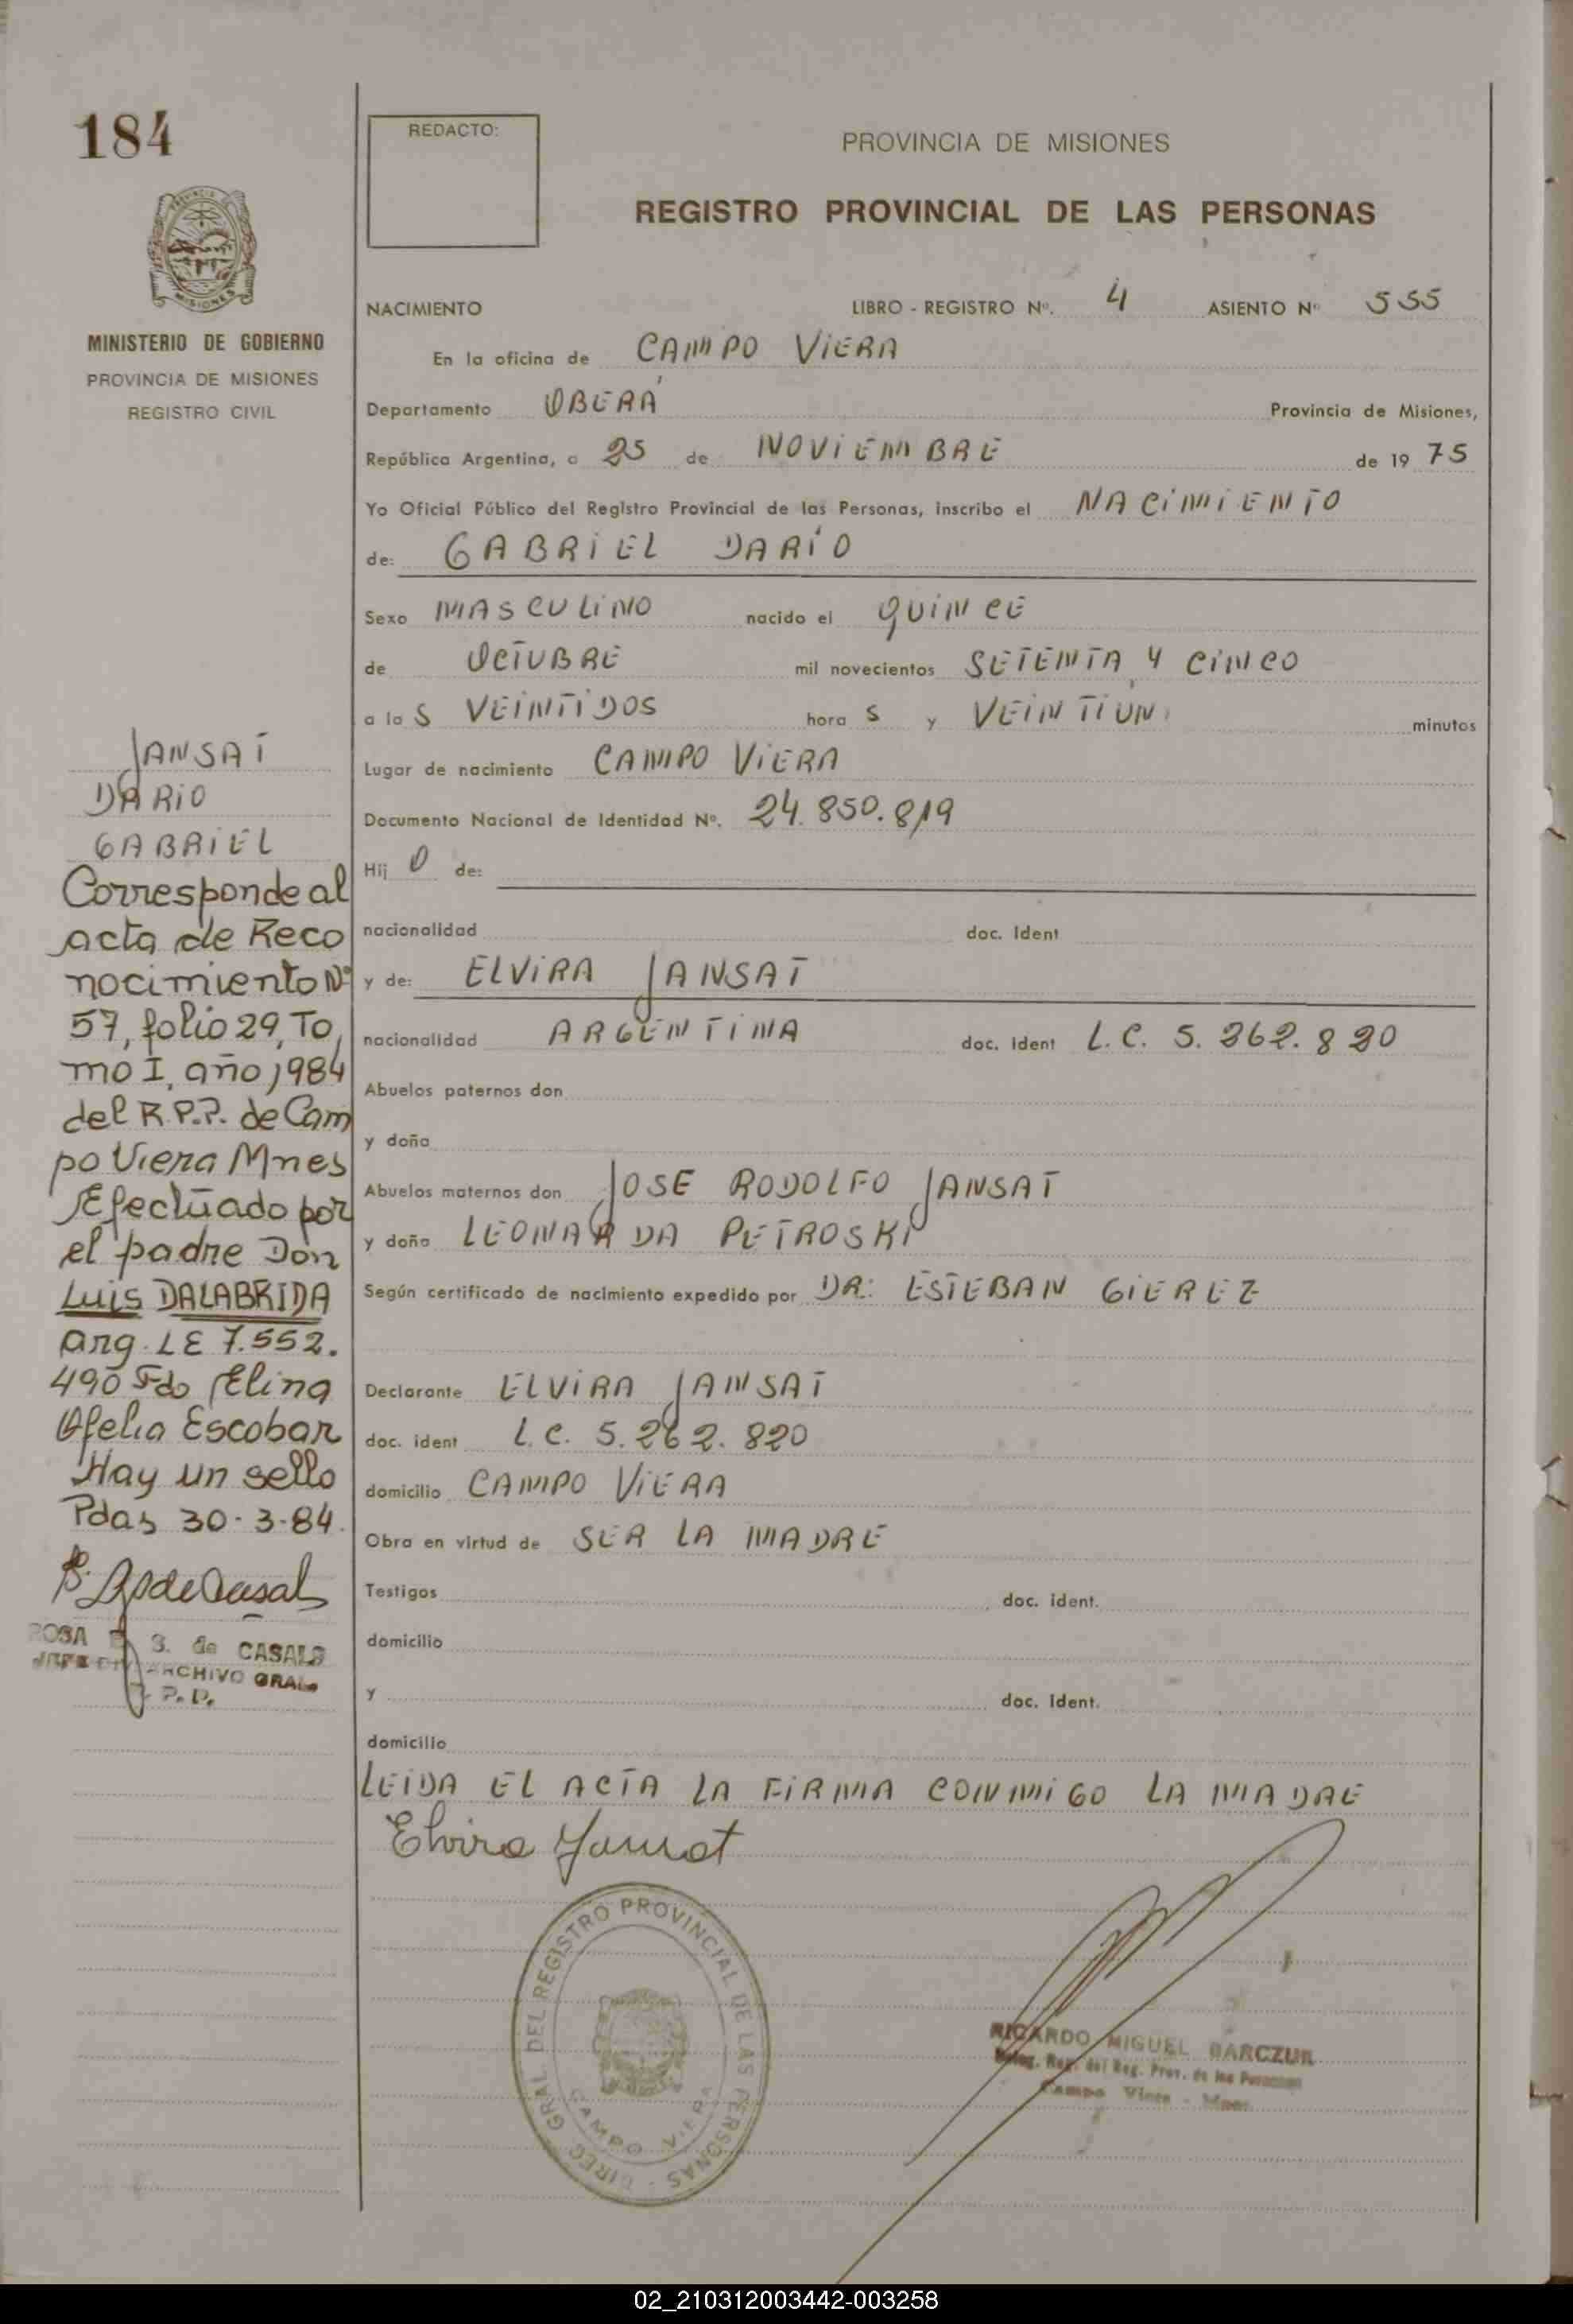 184
PROVINCIA
MISIONES
MINISTERIO DE GOBIERNO
PROVINCIA DE MISIONES
REGISTRO CIVIL
JANSAT
DARIO
GABRIEL
Corresponde al
acta de Reco
nocimiento Nº
57, folio 29, To
mo I, año 1984
del R.P.P. de Cam
po Viera Mnes
Efectuado por
el padre Don
Luis DALABRIDA
arg. LE 7.552.
490 Fdo Elina
Ofelia Escobar
Hay un sello
Pdas 30-3-84.
ROSA S. de CASALS
JEFE DIV ARCHIVO GRAL.
P. P.
REDACTO:
PROVINCIA DE MISIONES
REGISTRO PROVINCIAL DE LAS PERSONAS
NACIMIENTO LIBRO - REGISTRO Nº. 4 ASIENTO Nº 555
En la oficina de CAMPO VIERA
Departamento OBERÁ Provincia de Misiones,
República Argentina, a 25 de NOVIEMBRE de 19 75
Yo Oficial Público del Registro Provincial de las Personas, inscribo el NACIMIENTO
de: GABRIEL DARÍO
Sexo MASCULINO nacido el QUINCE
de OCTUBRE mil novecientos SETENTA Y CINCO
a la S VEINTIDOS hora S y VEINTIUN minutos
Lugar de nacimiento CAMPO VIERA
Documento Nacional de Identidad Nº. 24.850.819
Hij O de:
nacionalidad doc. Ident
y de: ELVIRA JANSAT
nacionalidad ARGENTINA doc. ident L.C. 5.262.820
Abuelos paternos don
y doña
Abuelos maternos don JOSE RODOLFO JANSAT
y doña LEONARDA PETROSKI
Según certificado de nacimiento expedido por DR: ESTEBAN GIEREZ
Declarante ELVIRA JANSAT
doc. ident L.C. 5.262.820
domicilio CAMPO VIERA
Obra en virtud de SER LA MADRE
Testigos doc. ident.
domicilio
y doc. Ident.
domicilio
LEIDA EL ACTA LA FIRMA CONMIGO LA MADRE
Elvira Jansat
DIREC. GRAL DEL REGISTRO PROVINCIAL DE LAS PERSONAS
CAMPO VIERA
RICARDO MIGUEL BARCZUK
Deleg. Reg. del Reg. Prov. de las Personas
Campo Viera - Mnes.
02_210312003442-003258